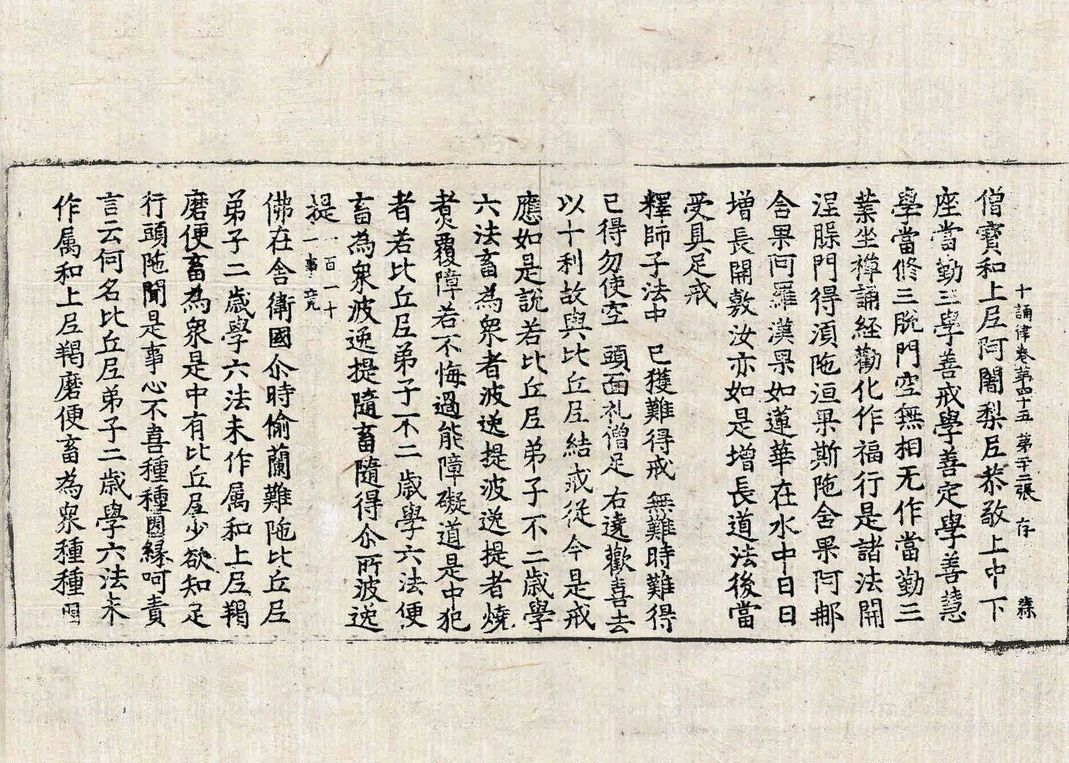 十誦律卷第四十五　第二十三張　存
僧寶和上𡰱阿闍梨𡰱恭敬上中下
座當勤三學善戒學善定學善慧
學當修三脫門空無相无作當勤三
業坐禪誦經勸化作福行是諸法開
涅槃門得湏陁洹果斯陁含果阿那
含果阿羅漢果如蓮華在水中日日
增長開敷汝亦如是增長道法後當
受具足戒
釋師子法中　已獲難得戒　無難時難得
已得勿使空　頭面礼僧足　右遶歡喜去
以十利故與比丘𡰱結戒從今是戒
應如是說若比丘𡰱弟子不二歲學
六法畜為衆者波逸提波逸提者燒
煑覆障若不悔過能障礙道是中犯
者若比丘𡰱弟子不二歲學六法便
畜為衆波逸提隨畜隨得尒所波逸
提一百一十一事竟
佛在舍衛國尒時偷蘭難陁比丘𡰱
弟子二歲學六法未作属和上𡰱羯
磨便畜為衆是中有比丘𡰱少欲知足
行頭陁聞是事心不喜種種因緣呵責
言云何名比丘𡰱弟子二歲學六法未
作属和上𡰱羯磨便畜為衆種種因